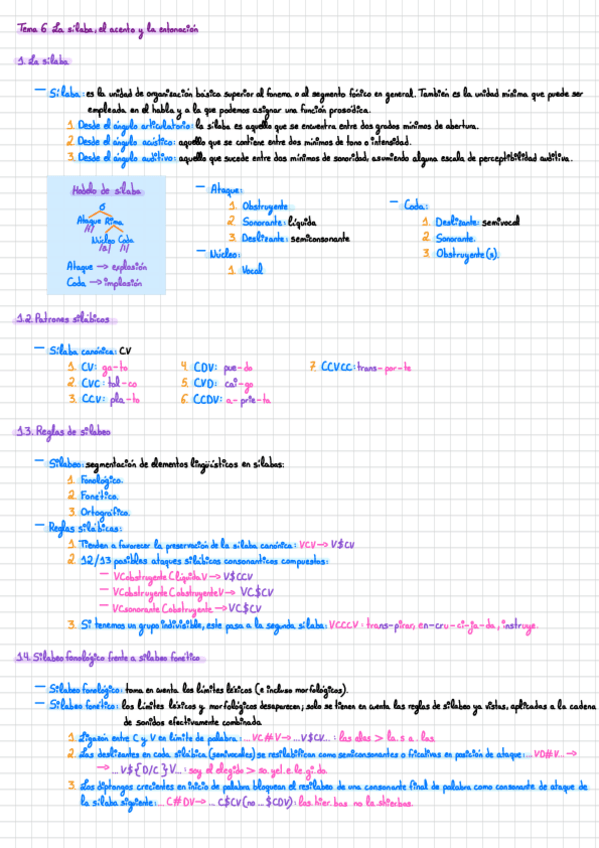 Tema 6. La sílaba, el acento y la entonación
1. La sílaba
— Sílaba: es la unidad de organización básica superior al fonema o al segmento fónico en general. También es la unidad mínima que puede ser
empleada en el habla y a la que podemos asignar una función prosódica.
1. Desde el ángulo articulatorio: la sílaba es aquello que se encuentra entre dos grados mínimos de abertura.
2. Desde el ángulo acústico: aquello que se contiene entre dos mínimos de tono o intensidad.
3. Desde el ángulo auditivo: aquello que sucede entre dos mínimos de sonoridad, asumiendo alguna escala de perceptibilidad auditiva.
Modelo de sílaba
σ
Ataque Rima
Núcleo Coda
Ataque → explosión
Coda → implosión
— Ataque:
1. Obstruyente
2. Sonorante: líquida
3. Deslizante: semiconsonante
— Núcleo:
1. Vocal
— Coda:
1. Deslizante: semivocal
2. Sonorante.
3. Obstruyente(s).
1.2. Patrones silábicos
— Sílaba canónica: CV
1. CV: ga-to
2. CVC: tal-co
3. CCV: pla-to
4. CDV: pue-do
5. CVD: cai-go
6. CCDV: a-prie-ta
7. CCVCC: trans-por-te
1.3. Reglas de silabeo
— Silabeo: segmentación de elementos lingüísticos en sílabas:
1. Fonológico.
2. Fonético.
3. Ortográfico.
— Reglas silábicas:
1. Tienden a favorecer la preservación de la sílaba canónica: VCV → V$CV
2. 12/13 posibles ataques silábicos consonánticos compuestos:
— VCobstruyente ClíquidaV → V$CCV
— VCobstruyente CobstruyenteV → VC$CV
— VCsonorante Cobstruyente → VC$CV
3. Si tenemos un grupo indivisible, este pasa a la segunda sílaba: VCCCV: trans-pirar, en-cru-ci-ja-da, instruye.
1.4. Silabeo fonológico frente a silabeo fonético
— Silabeo fonológico: toma en cuenta los límites léxicos (e incluso morfológicos).
— Silabeo fonético: los límites léxicos y morfológicos desaparecen; solo se tienen en cuenta las reglas de silabeo ya vistas, aplicadas a la cadena
de sonidos efectivamente combinada
1. Ligazón entre C y V en límite de palabra: ...VC#V → ...V$CV...: las alas > la.s a.las.
2. Las deslizantes en coda silábica (semivocales) se resilabifican como semiconsonantes o fricativas en posición de ataque: ...VD#V... →
→ ...V${D/C}V...: soy elegido > so.yel.e.le.gi.do.
3. Los diptongos crecientes en inicio de palabra bloquean el resilabeo de una consonante final de palabra como consonante de ataque de
la sílaba siguiente: ...C#DV → ... C$CV (no ...$CDV): las.hier.bas no la.shierbas.